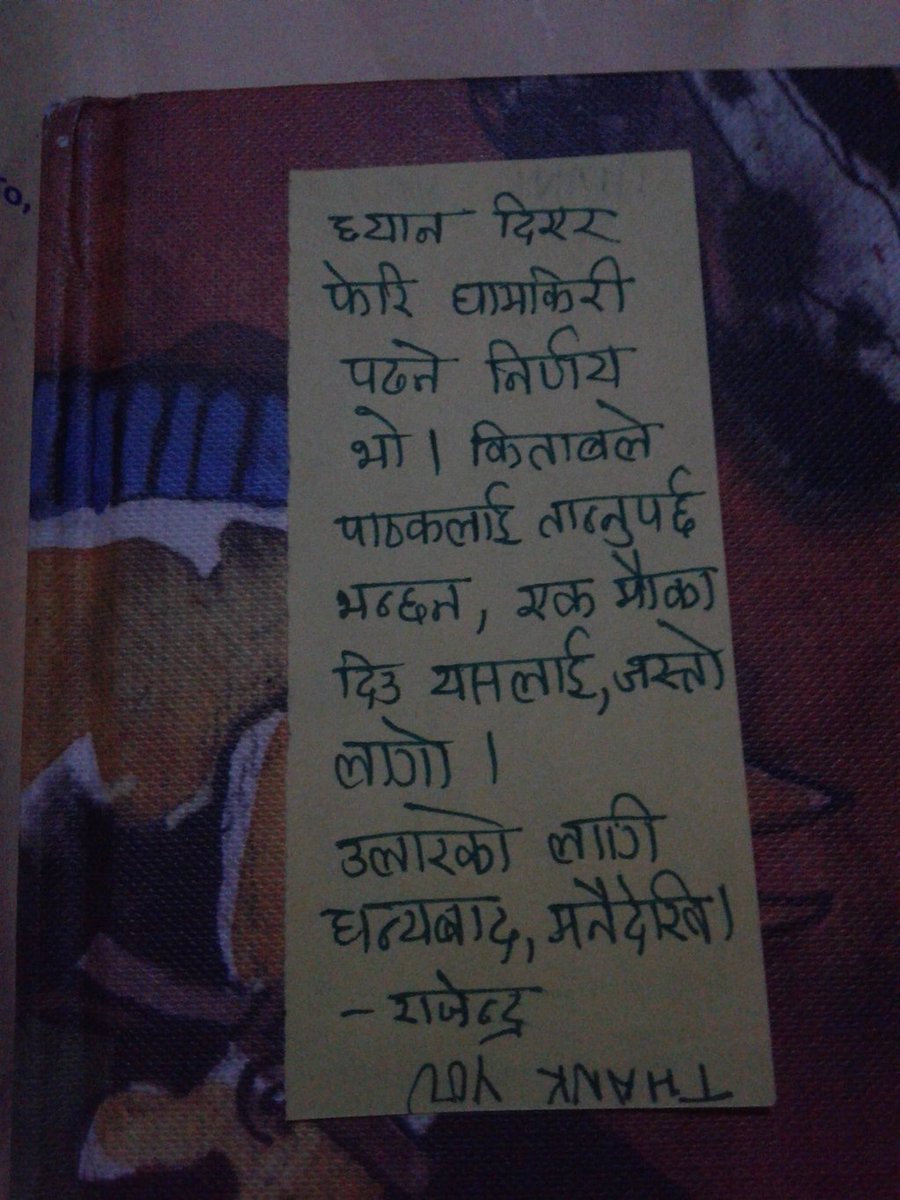 ध्यान दिएर
फेरि घामकिरी
पढ्ने निर्णय
भो । किताबले
पाठकलाई तान्नुपर्छ
भन्छन, एक मौका
दिउ यसलाई, जस्तो
लाग्यो ।
उलारको लागि
धन्यबाद, मनैदेखि ।
– राजेन्द्र
THANK YOU